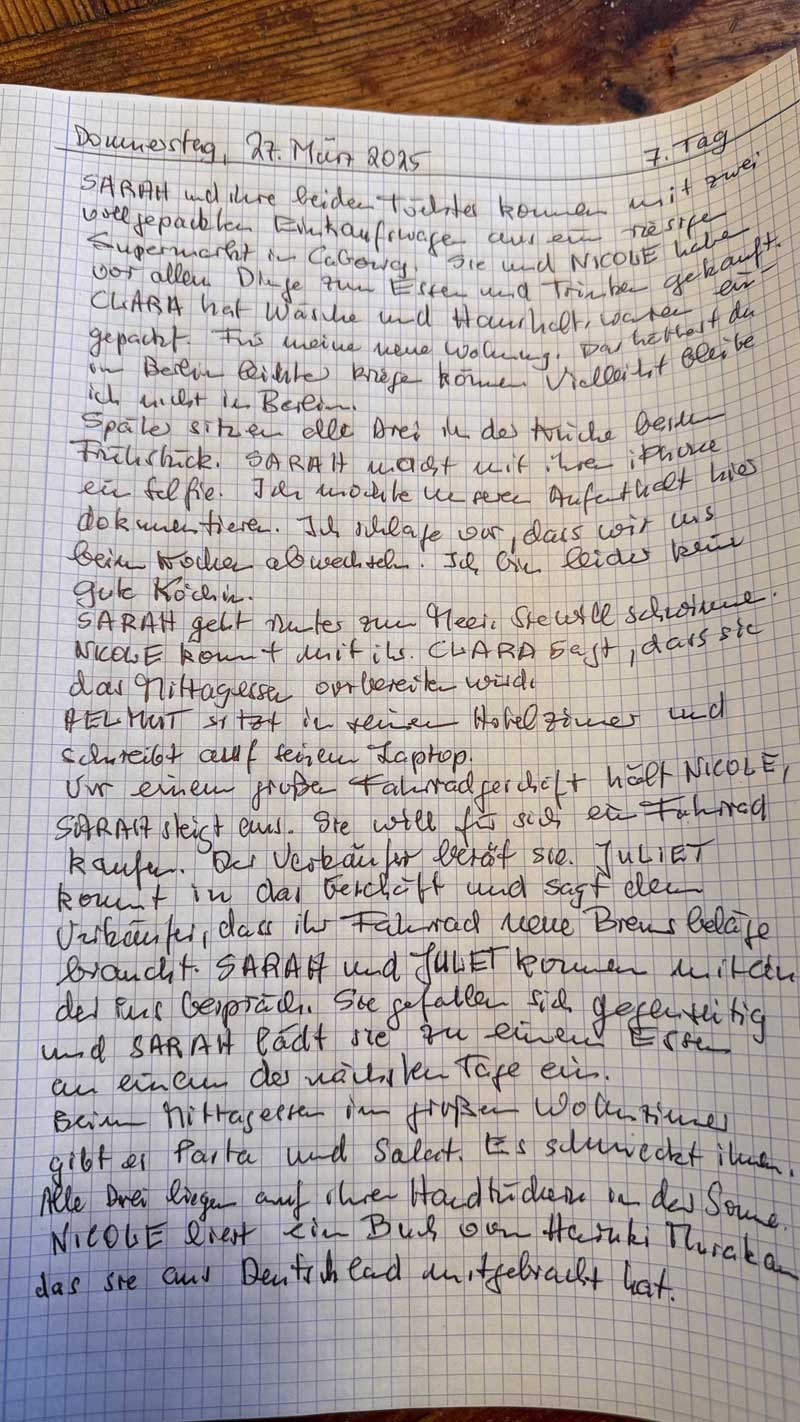 Donnerstag, 27. März 2025 7. Tag
SARAH und ihre beiden Töchter kommen mit zwei
vollgepackten Einkaufswagen aus ein riesigen
Supermarkt in Cabourg. Sie und NICOLE haben
vor allem Dinge zum Essen und Trinken gekauft.
CLARA hat Wäsche und Haushaltswaren ein-
gepackt. Für meine neue Wohnung. Das hättest du
in Berlin leichter kriegen können. Vielleicht bleibe
ich nicht in Berlin.
Später sitzen alle Drei in der Küche beim
Frühstück. SARAH macht mit ihrem iPhone
ein Selfie. Ich möchte unseren Aufenthalt hier
dokumentieren. Ich schlage vor, dass wir uns
beim Kochen abwechseln. Ich bin leider keine
gute Köchin.
SARAH geht runter zum Meer. Sie will schwimmen.
NICOLE kommt mit ihr. CLARA sagt, dass sie
das Mittagessen vorbereiten wird.
HELMUT sitzt in seinem Hotelzimmer und
schreibt auf seinem Laptop.
Vor einem großen Fahrradgeschäft hält NICOLE,
SARAH steigt aus. Sie will für sich ein Fahrrad
kaufen. Der Verkäufer berät sie. JULIET
kommt in das Geschäft und sagt dem
Verkäufer, dass ihr Fahrrad neue Bremsbeläge
braucht. SARAH und JULIET kommen mitein
der ins Gespräch. Sie gefallen sich gegenseitig
und SARAH lädt sie zu einem Essen
an einem der nächsten Tage ein.
Beim Mittagessen im großen Wohnzimmer
gibt es Pasta und Salat. Es schmeckt ihnen.
Alle Drei liegen auf ihren Handtüchern in der Sonne.
NICOLE liest ein Buch von Haruki Murakam
das sie aus Deutschland mitgebracht hat.